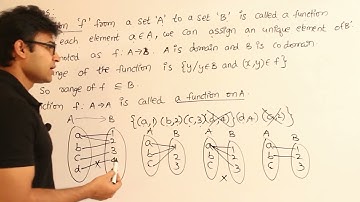 s:
tion 'f' from a set 'A' to a set 'B' is called a function
each element a∈A, we can assign an unique element of 'B'.
noted as f: A→B. A is domain and B is codomain
range of the function is {y/y∈B and (x,y)∈f}
So range of f ⊆ B.
nction f: A→A is called a function on A.
A B {(a,1)(b,2)(c,3)(d,4)}
a b c d 1 2 3 4
A B
a b c 1 2 3
A B
a b c 1 2 3
A B
a b c 1 2 3